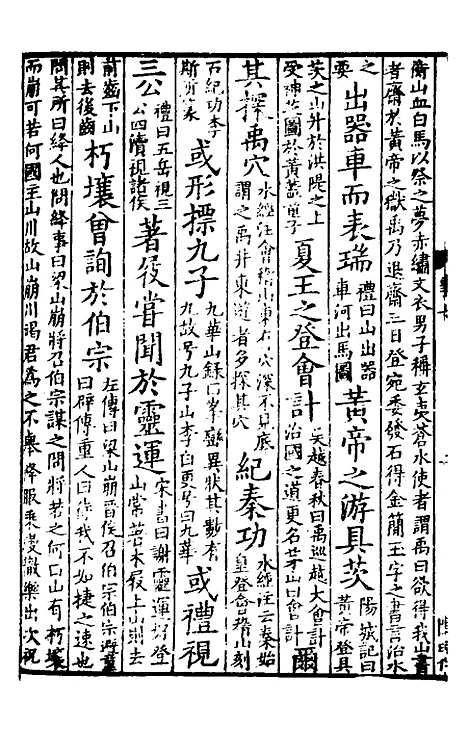 衡山血白馬以祭之夢赤繡文衣男子稱玄夷蒼水使者謂禹曰欲得我山書
者齋於黃帝之嶽禹乃退齋三日登宛委發石得金簡玉字之書言治水
之要出器車而表瑞禮曰山出器車河出馬圖黃帝之游具茨陽城記曰黃帝登具
茨之山升於洪隄之上受神芝圖於黃蓋童子夏王之登會計吳越春秋曰禹巡越大會計治國之道更名茅山曰會計爾
其探禹穴水經注會稽山東有穴深不見底謂之禹井東遊者多探其穴紀秦功水經注云秦始皇登會稽山刻
石紀功李斯篆或形標九子九華山錄曰峯巒異狀其數有九故号九子山李白更号九華或禮視
三公禮曰五岳視三公四瀆視諸侯著伇嘗聞於靈運宋書曰謝靈運好登山常著木屐上山則去
前齒下山則去後齒朽壤曾詢於伯宗左傳曰梁山崩晉侯召伯宗伯宗辟重曰辟傳重人曰待我不如捷之速也
問其所曰絳人也問絳事曰梁山崩將召伯宗謀之問將若之何曰山有朽壤
而崩可若何國主山川故山崩川竭君為之不舉降服乘縵徹樂出次祝